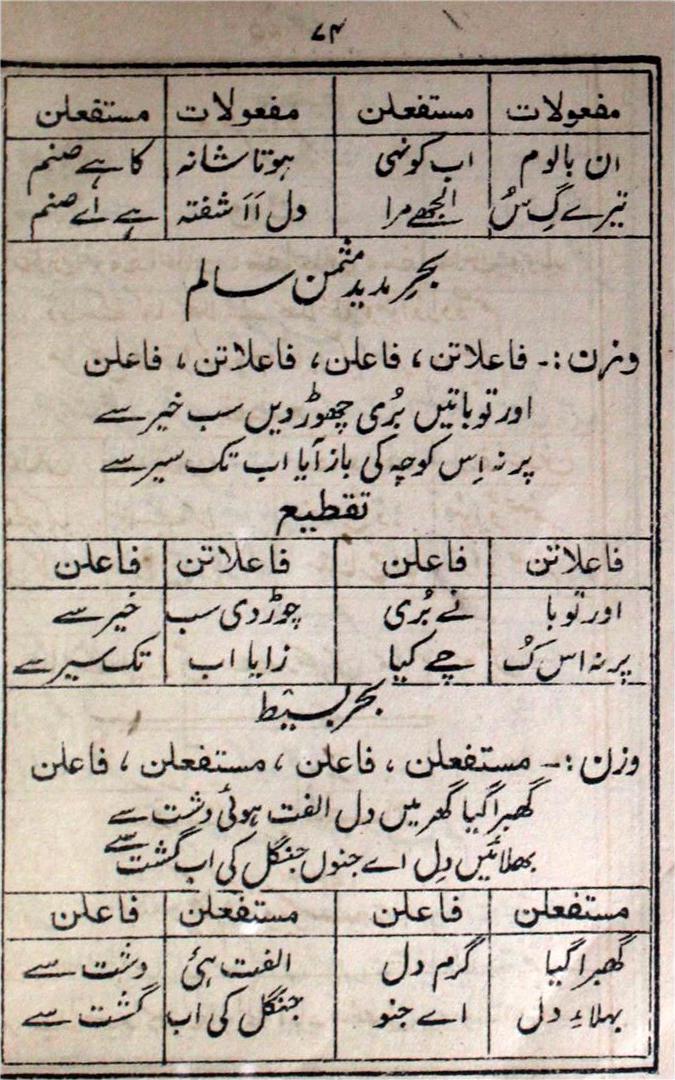 ۷۴
مفعولات مستفعلن مفعولات مستفعلن
ان بالوم اب کو نہی ہوتا شانہ کا ہے صنم
تیرے گِ سُ الجھے مرا دل اَا شفتہ ہے اے صنم
بحرِ مدید مثمن سالم
وزن :۔ فاعلاتن ، فاعلن ، فاعلاتن ، فاعلن
اور تو باتیں بُری چھوڑ دیں سب خیر سے
پر نہ اِس کوچہ کی باز آیا اب تک سیر سے
تقطیع
فاعلاتن فاعلن فاعلاتن فاعلن
اور تو با نے بُری چوڑ دی سب خیر سے
پر نہ اس کُ چے کیا زایا اب تک سیر سے
بحر بسیط
وزن :۔ مستفعلن ، فاعلن ، مستفعلن ، فاعلن
گھبرا گیا گھر میں دل الفت ہوئی دشت سے
بھلائیں دِل اے جنوں جنگل کی اب گشت سے
مستفعلن فاعلن مستفعلن فاعلن
گھبرا گیا گرم دل الفت ہئی دشت سے
بہلاءِ دل اے جنو جنگل کی اب گشت سے